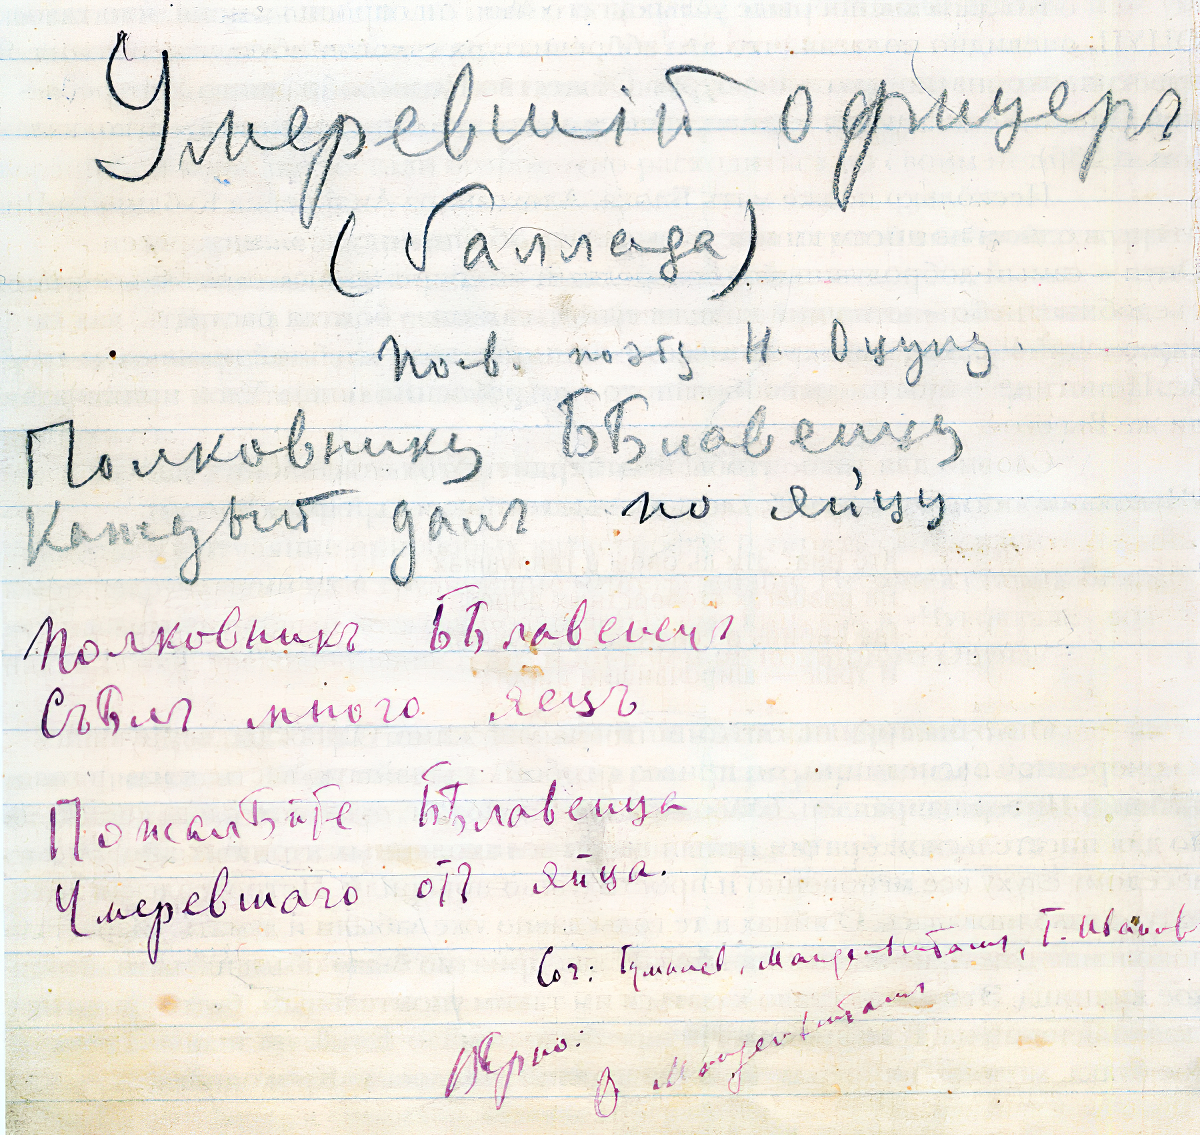 Умеревшій офицеръ
(баллада)
Посв. поэту Н Оцупу
Полковнику Бѣлавенцу
Каждый далъ по яйцу
Полковникъ Бѣлавенецъ
Съѣлъ много яецъ
Пожалѣйте Бѣлавенца
Умеревшаго отъ яйца.
Соч: Гумилев, Мандельштамъ, Г. Иванов
Вѣрно:
О Мандельштамъ